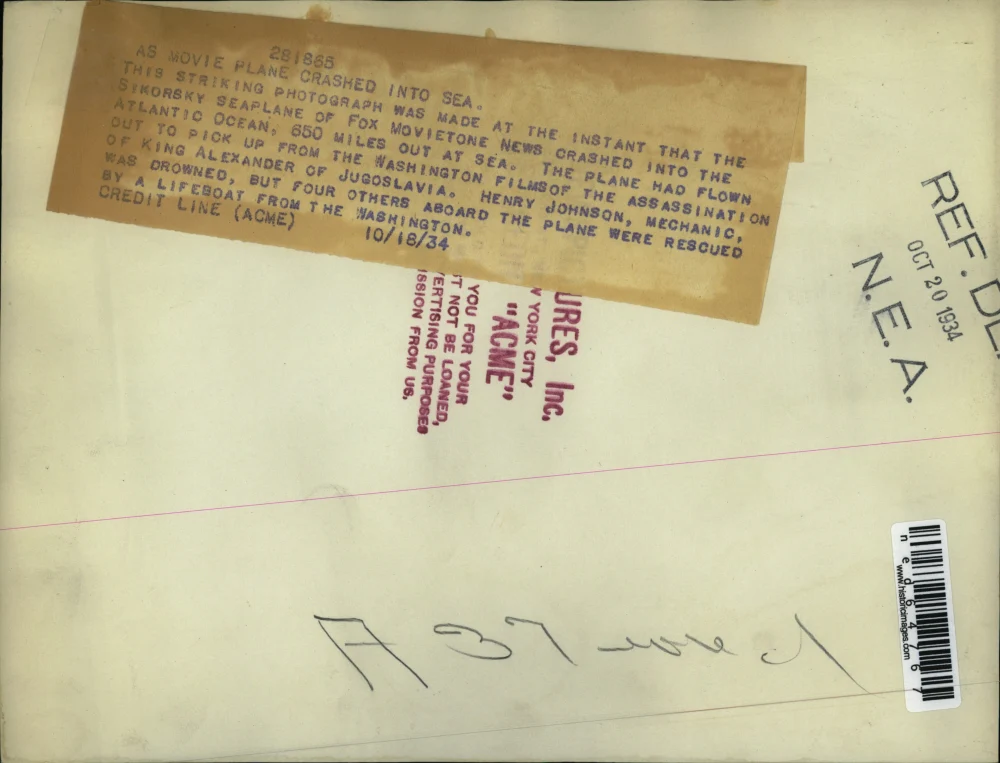 281865
AS MOVIE PLANE CRASHED INTO SEA.
THIS STRIKING PHOTOGRAPH WAS MADE AT THE INSTANT THAT THE
SIKORSKY SEAPLANE OF FOX MOVIETONE NEWS CRASHED INTO THE
ATLANTIC OCEAN, 650 MILES OUT AT SEA. THE PLANE HAD FLOWN
OUT TO PICK UP FROM THE WASHINGTON FILMSOF THE ASSASSINATION
OF KING ALEXANDER OF JUGOSLAVIA. HENRY JOHNSON, MECHANIC,
WAS DROWNED, BUT FOUR OTHERS ABOARD THE PLANE WERE RESCUED
BY A LIFEBOAT FROM THE WASHINGTON.
CREDIT LINE (ACME) 10/18/34
URES, Inc.
YORK CITY
"ACME"
YOU FOR YOUR
T NOT BE LOANED,
ERTISING PURPOSES
ISSION FROM US.
REF. DE
OCT 20 1934
N.E.A.
ned64767
www.historicimages.com